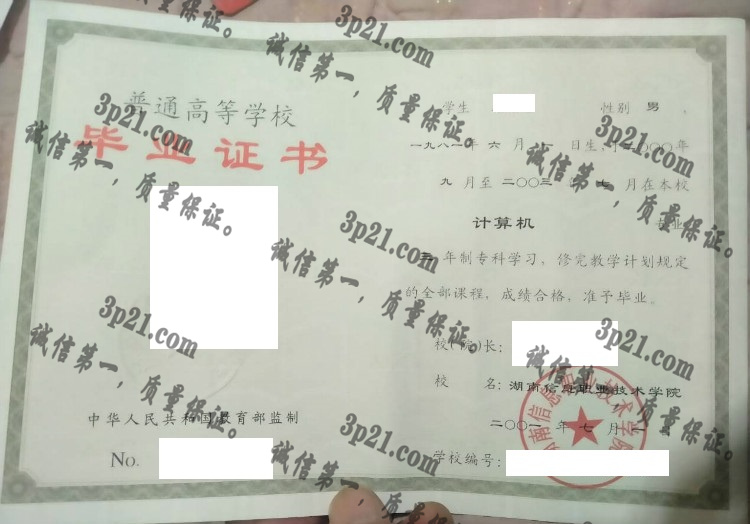 普通高等学校
毕业证书
中华人民共和国教育部监制
No.
学生 性别 男 ,
一九八一年 六 月 一 日生,于二〇〇〇年
九 月至 二〇〇三 年 七 月在本校
计算机 毕业
三 年制专科学习,修完教学计划规定
的全部课程,成绩合格,准予毕业。
校(院)长:
校 名:湖南信息职业技术学院
二〇〇 年 七 月
学校编号:
湖南信息职业技术学院
3p21.com
诚信第一,质量保证。
3p21.com
诚信第一,质量保证。
3p21.com
诚信第一,质量保证。
3p21.com
诚信第一,质量保证。
3p21.com
诚信第一,质量保证。
3p21.com
诚信第一,质量保证。
3p21.com
诚信第一,质量保证。
诚信第一,质量保证。